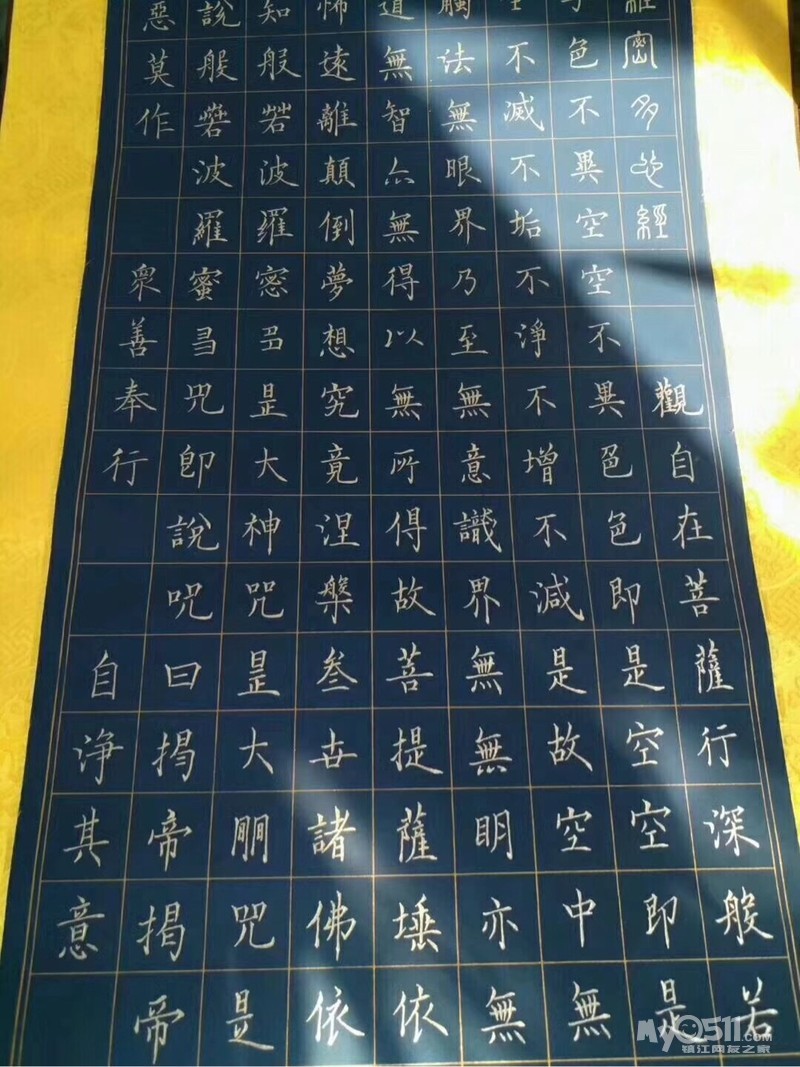 羅密多心經　觀自在菩薩行深般若
子色不異空空不異色色即是空空即是
生不滅不垢不淨不增不減是故空中無
觸法無眼界乃至無意識界無無明亦無
道無智亦無得以無所得故菩提薩埵依
怖遠離顛倒夢想究竟涅槃叁世諸佛依
知般若波羅密多是大神咒是大明咒是
說般若波羅蜜多咒即說咒曰揭帝揭帝
惡莫作　眾善奉行　自淨其意
MY0511.com
镇江网友之家